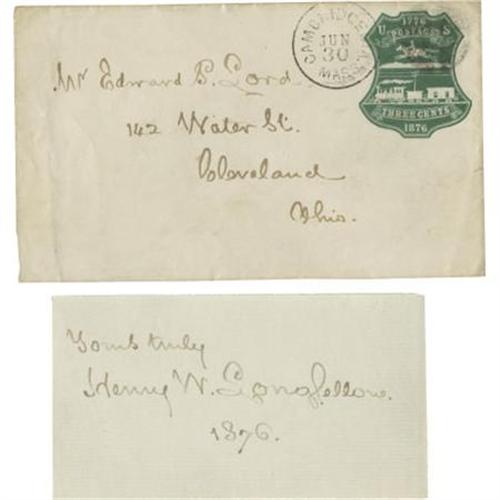 CAMBRIDGE
JUN
30
MASS.
1776
U POSTAGE S
THREE CENTS
1876
Mr Edward P. Lord
142 Water St.
Cleveland
Ohio.
Yours truly
Henry W. Longfellow.
1876.